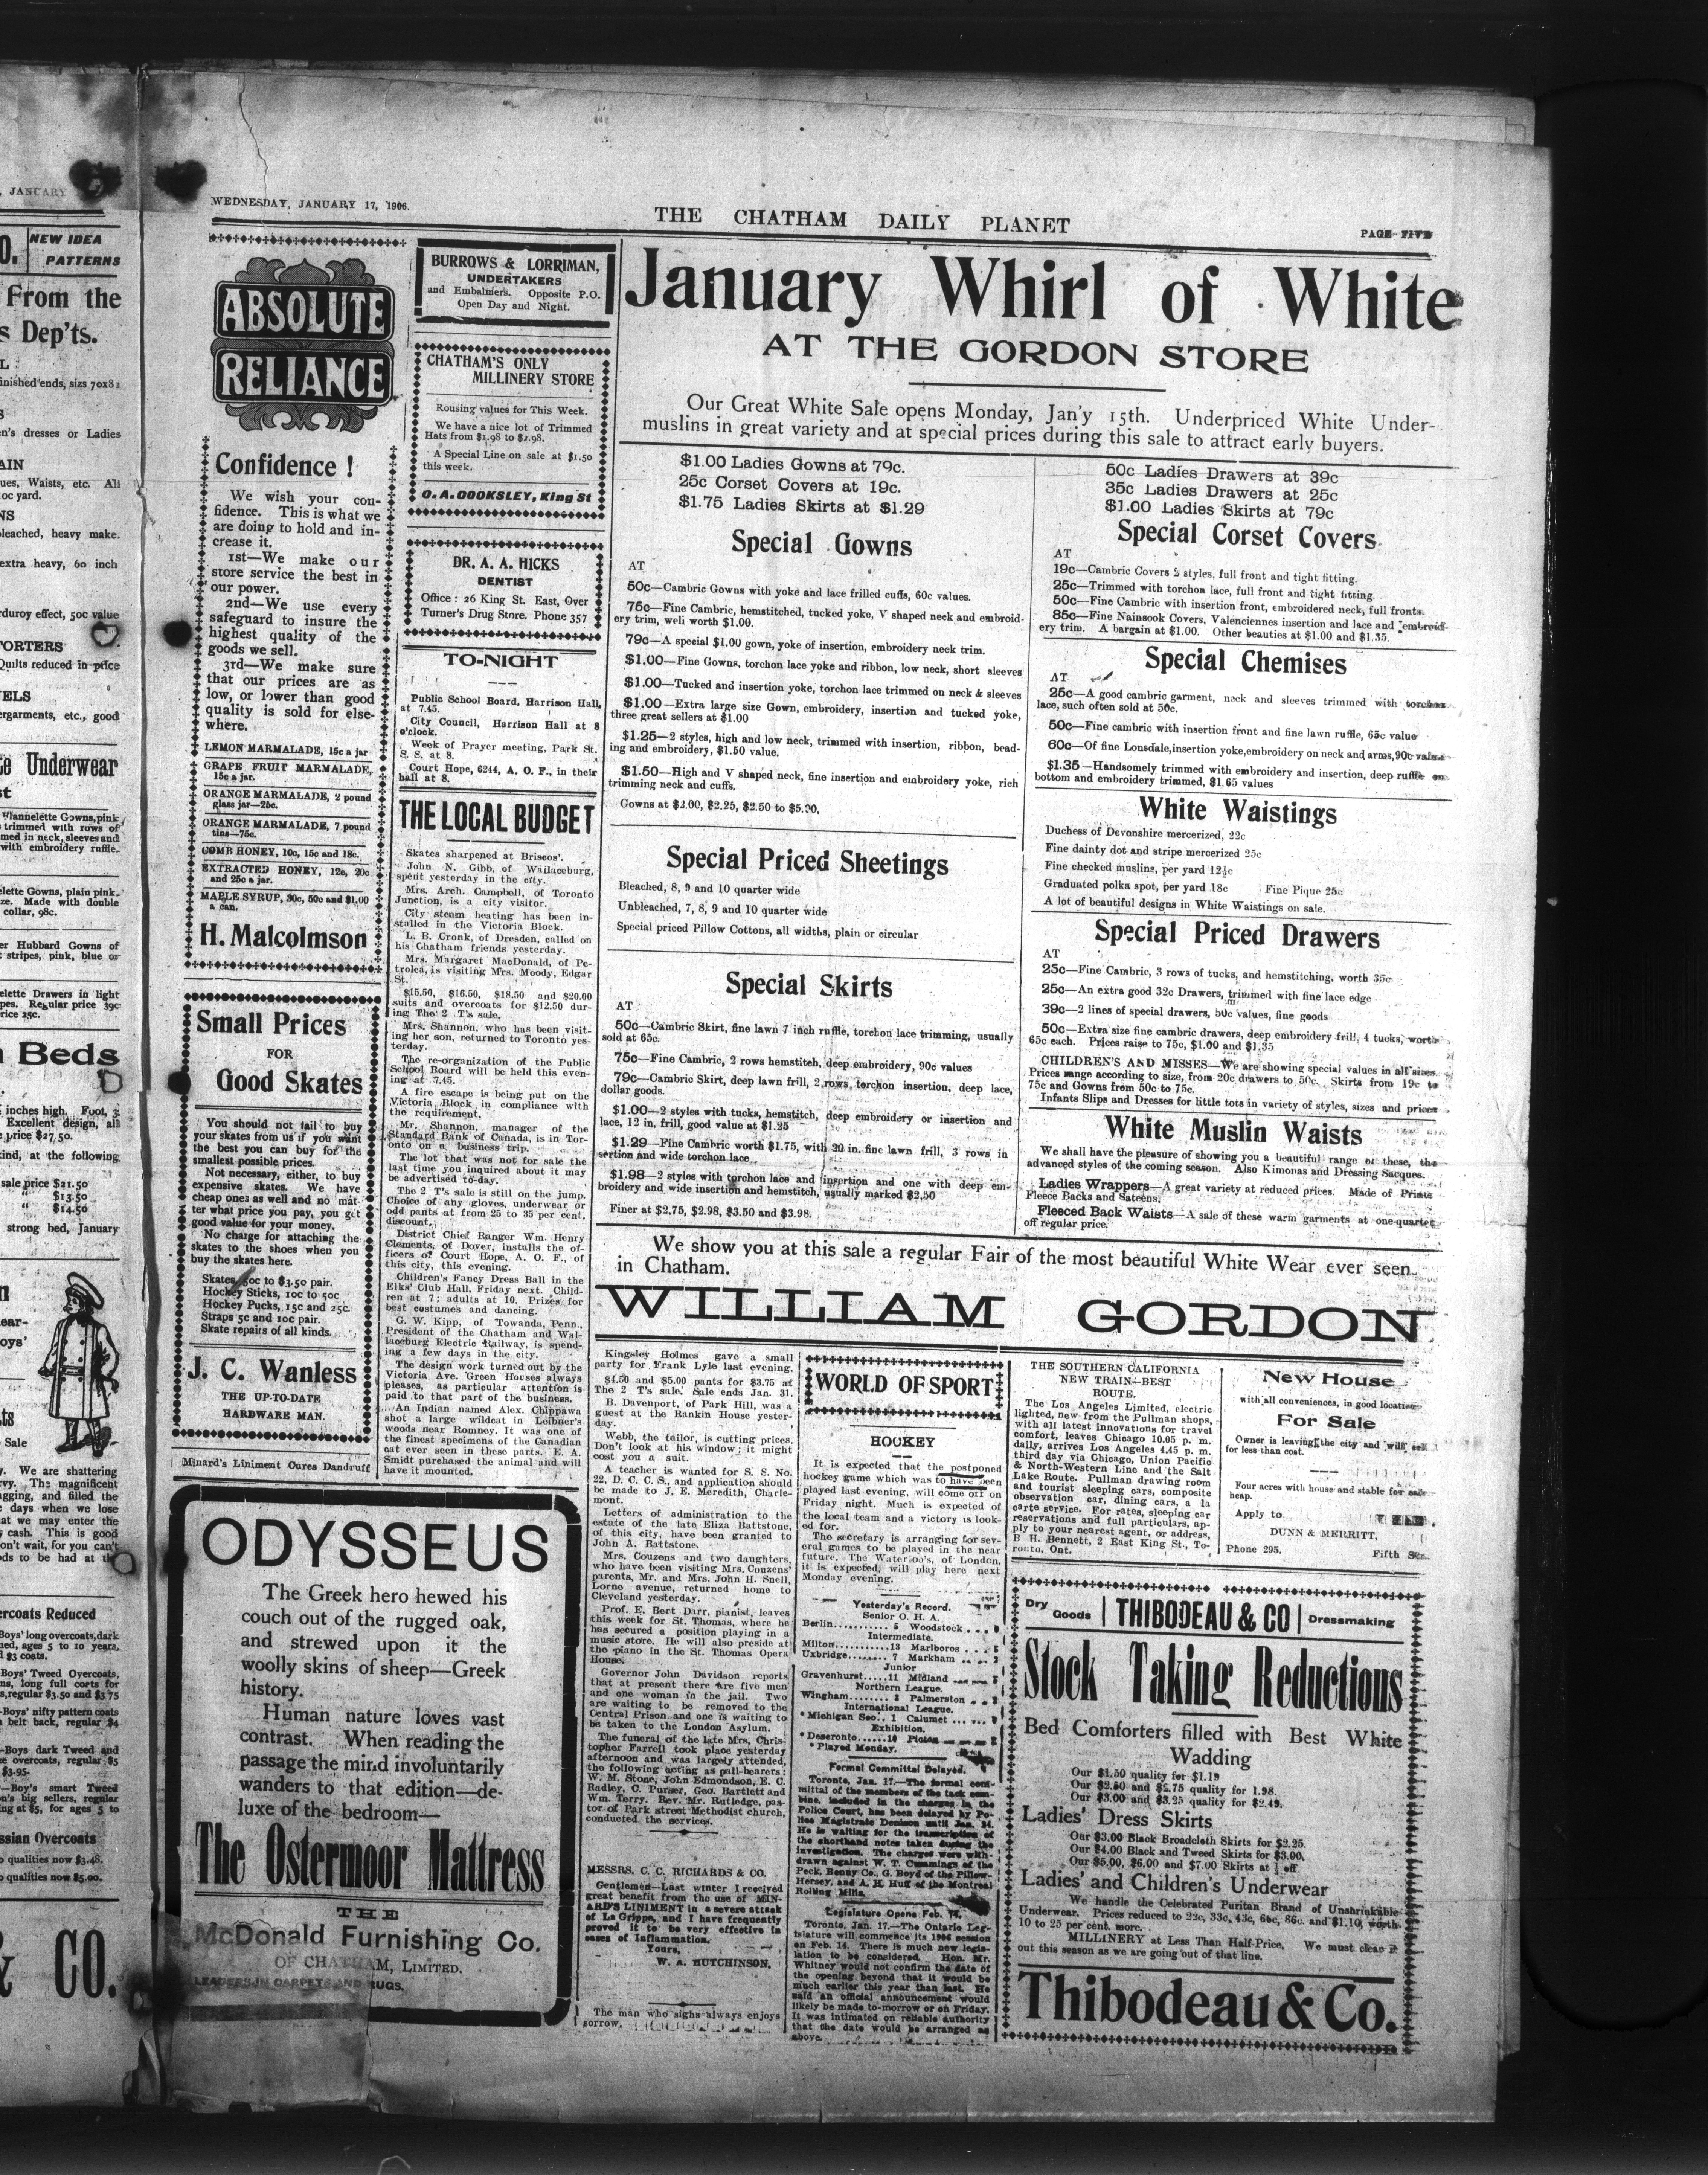 WEDNESDAY, JANUARY 17, 1906.
THE CHATHAM DAILY PLANET
PAGE FIVE
, JANUARY
O. NEW IDEA
PATTERNS
From the
s Dep'ts.
inished ends, sizs 70x81
n's dresses or Ladies
AIN
ues, Waists, etc. All
oc yard.
NS
leached, heavy make.
extra heavy, 60 inch
rduroy effect, 50c value
ORTERS
Quilts reduced in price
ELS
ergarments, etc., good
te Underwear
st
Flannelette Gowns, pink
trimmed with rows of
med in neck, sleeves and
with embroidery ruffle.
elette Gowns, plain pink
ze. Made with double
collar, 98c.
er Hubbard Gowns of
stripes, pink, blue or
elette Drawers in light
pes. Regular price 39c
rice 25c.
Beds
inches high. Foot, 3
Excellent design, all
price $27.50.
kind, at the following
sale price $21.50
" $13.50
" $14.50
strong bed, January
ear-
oys'
ts
Sale
y. We are shattering
vy. The magnificent
agging, and filled the
days when we lose
at we may enter the
cash. This is good
on't wait, for you can't
ds to be had at th
ercoats Reduced
Boys' long overcoats, dark
ned, ages 5 to 10 years,
$3 coats.
Boys' Tweed Overcoats,
ns, long full corts for
s, regular $3.50 and $3 75
Boys' nifty pattern coats
belt back, regular $4
Boys dark Tweed and
e overcoats, regular $5
$3.95.
Boy's smart Tweed
n's big sellers, regular
ng at $5, for ages 5 to
ssian Overcoats
qualities now $3.48.
qualities now $5.00.
& CO.
ABSOLUTE
RELIANCE
Confidence !
We wish your con-
fidence. This is what we
are doing to hold and in-
crease it.
1st—We make our
store service the best in
our power.
2nd—We use every
safeguard to insure the
highest quality of the
goods we sell.
3rd—We make sure
that our prices are as
low, or lower than good
quality is sold for else-
where.
LEMON MARMALADE, 15c a jar
GRAPE FRUIT MARMALADE,
15c a jar.
ORANGE MARMALADE, 2 pound
glass jar—25c.
ORANGE MARMALADE, 7 pound
tins—75c.
COMB HONEY, 10c, 15c and 18c.
EXTRACTED HONEY, 12c, 20c
and 25c a jar.
MAPLE SYRUP, 30c, 50c and $1.00
a can.
H. Malcolmson
Small Prices
FOR
Good Skates
You should not fail to buy
your skates from us if you want
the best you can buy for the
smallest possible prices.
Not necessary, either, to buy
expensive skates. We have
cheap ones as well and no mat-
ter what price you pay, you get
good value for your money.
No charge for attaching the
skates to the shoes when you
buy the skates here.
Skates, 50c to $3.50 pair.
Hockey Sticks, 10c to 50c
Hockey Pucks, 15c and 25c.
Straps 5c and 10c pair.
Skate repairs of all kinds.
J. C. Wanless
THE UP-TO-DATE
HARDWARE MAN.
Minard's Liniment Cures Dandruff
BURROWS & LORRIMAN,
UNDERTAKERS
and Embalmers. Opposite P.O.
Open Day and Night.
CHATHAM'S ONLY
MILLINERY STORE
Rousing values for This Week.
We have a nice lot of Trimmed
Hats from $1.98 to $2.98.
A Special Line on sale at $1.50
this week.
C. A. COOKSLEY, King St
DR. A. A. HICKS
DENTIST
Office : 26 King St. East, Over
Turner's Drug Store. Phone 357
TO-NIGHT
Public School Board, Harrison Hall,
at 7.45.
City Council, Harrison Hall at 8
o'clock.
Week of Prayer meeting, Park St.
S. S. at 8.
Court Hope, 6244, A. O. F., in their
hall at 8.
THE LOCAL BUDGET
Skates sharpened at Briscos'.
John N. Gibb, of Wallaceburg,
spent yesterday in the city.
Mrs. Arch. Campbell, of Toronto
Junction, is a city visitor.
City steam heating has been in-
stalled in the Victoria Block.
L. B. Cronk, of Dresden, called on
his Chatham friends yesterday.
Mrs. Margaret MacDonald, of Pe-
trolea, is visiting Mrs. Moody, Edgar
St.
$15.50, $16.50, $18.50 and $20.00
suits and overcoats for $12.50 dur-
ing The 2 T's sale.
Mrs. Shannon, who has been visit-
ing her son, returned to Toronto yes-
terday.
The re-organization of the Public
School Board will be held this even-
ing at 7.45.
A fire escape is being put on the
Victoria Block in compliance with
the requirement.
Mr. Shannon, manager of the
Standard Bank of Canada, is in Tor-
onto on a business trip.
The lot that was not for sale the
last time you inquired about it may
be advertised to-day.
The 2 T's sale is still on the jump.
Choice of any gloves, underwear or
odd pants at from 25 to 35 per cent.
discount.
District Chief Ranger Wm. Henry
Clements, of Dover, installs the of-
ficers of Court Hope, A. O. F., of
this city, this evening.
Children's Fancy Dress Ball in the
Elks' Club Hall, Friday next. Child-
ren at 7; adults at 10. Prizes for
best costumes and dancing.
G. W. Kipp, of Towanda, Penn.,
President of the Chatham and Wal-
laceburg Electric Railway, is spend-
ing a few days in the city.
The design work turned out by the
Victoria Ave. Green Houses always
pleases, as particular attention is
paid to that part of the business.
An Indian named Alex. Chippawa
shot a large wildcat in Leibner's
woods near Romney. It was one of
the finest specimens of the Canadian
cat ever seen in these parts. E. A.
Smidt purchased the animal and will
have it mounted.
ODYSSEUS
The Greek hero hewed his
couch out of the rugged oak,
and strewed upon it the
woolly skins of sheep—Greek
history.
Human nature loves vast
contrast. When reading the
passage the mind involuntarily
wanders to that edition—de-
luxe of the bedroom—
The Ostermoor Mattress
THE
McDonald Furnishing Co.
OF CHATHAM, LIMITED.
LEADERS IN CARPETS AND RUGS.
January Whirl of White
AT THE GORDON STORE
Our Great White Sale opens Monday, Jan'y 15th. Underpriced White Under-
muslins in great variety and at special prices during this sale to attract early buyers.
$1.00 Ladies Gowns at 79c.
25c Corset Covers at 19c.
$1.75 Ladies Skirts at $1.29
Special Gowns
AT
50c—Cambric Gowns with yoke and lace frilled cuffs, 60c values.
75c—Fine Cambric, hemstitched, tucked yoke, V shaped neck and embroid-
ery trim, well worth $1.00.
79c—A special $1.00 gown, yoke of insertion, embroidery neck trim.
$1.00—Fine Gowns, torchon lace yoke and ribbon, low neck, short sleeves
$1.00—Tucked and insertion yoke, torchon lace trimmed on neck & sleeves
$1.00—Extra large size Gown, embroidery, insertion and tucked yoke,
three great sellers at $1.00
$1.25—2 styles, high and low neck, trimmed with insertion, ribbon, bead-
ing and embroidery, $1.50 value.
$1.50—High and V shaped neck, fine insertion and embroidery yoke, rich
trimming neck and cuffs.
Gowns at $2.00, $2.25, $2.50 to $5.00.
Special Priced Sheetings
Bleached, 8, 9 and 10 quarter wide
Unbleached, 7, 8, 9 and 10 quarter wide
Special priced Pillow Cottons, all widths, plain or circular
Special Skirts
AT
50c—Cambric Skirt, fine lawn 7 inch ruffle, torchon lace trimming, usually
sold at 65c.
75c—Fine Cambric, 2 rows hemstitch, deep embroidery, 90c values
79c—Cambric Skirt, deep lawn frill, 2 rows torchon insertion, deep lace,
dollar goods.
$1.00—2 styles with tucks, hemstitch, deep embroidery or insertion and
lace, 12 in. frill, good value at $1.25
$1.29—Fine Cambric worth $1.75, with 20 in. fine lawn frill, 3 rows in
sertion and wide torchon lace
$1.98—2 styles with torchon lace and insertion and one with deep em-
broidery and wide insertion and hemstitch, usually marked $2.50
Finer at $2.75, $2.98, $3.50 and $3.98.
50c Ladies Drawers at 39c
35c Ladies Drawers at 25c
$1.00 Ladies Skirts at 79c
Special Corset Covers
AT
19c—Cambric Covers 2 styles, full front and tight fitting.
25c—Trimmed with torchon lace, full front and tight fitting.
50c—Fine Cambric with insertion front, embroidered neck, full fronts.
85c—Fine Nainsook Covers, Valenciennes insertion and lace and embroid-
ery trim. A bargain at $1.00. Other beauties at $1.00 and $1.35.
Special Chemises
AT
25c—A good cambric garment, neck and sleeves trimmed with torchon
lace, such often sold at 50c.
50c—Fine cambric with insertion front and fine lawn ruffle, 65c value
60c—Of fine Lonsdale, insertion yoke, embroidery on neck and arms, 90c value
$1.35—Handsomely trimmed with embroidery and insertion, deep ruffle on
bottom and embroidery trimmed, $1.65 values
White Waistings
Duchess of Devonshire mercerized, 22c
Fine dainty dot and stripe mercerized 25c
Fine checked muslins, per yard 12½c
Graduated polka spot, per yard 18c Fine Pique 25c
A lot of beautiful designs in White Waistings on sale.
Special Priced Drawers
AT
25c—Fine Cambric, 3 rows of tucks, and hemstitching, worth 35c
25c—An extra good 32c Drawers, trimmed with fine lace edge
39c—2 lines of special drawers, 50c values, fine goods
50c—Extra size fine cambric drawers, deep embroidery frill, 4 tucks, worth
65c each. Prices raise to 75c, $1.00 and $1.35
CHILDREN'S AND MISSES—We are showing special values in all sizes.
Prices range according to size, from 20c drawers to 50c. Skirts from 19c to
75c and Gowns from 50c to 75c.
Infants Slips and Dresses for little tots in variety of styles, sizes and prices
White Muslin Waists
We shall have the pleasure of showing you a beautiful range of these, the
advanced styles of the coming season. Also Kimonas and Dressing Sacques.
Ladies Wrappers—A great variety at reduced prices. Made of Prints
Fleece Backs and Sateens.
Fleeced Back Waists—A sale of these warm garments at one-quarter
off regular price.
We show you at this sale a regular Fair of the most beautiful White Wear ever seen
in Chatham.
WILLIAM GORDON
Kingsley Holmes gave a small
party for Frank Lyle last evening.
$4.50 and $5.00 pants for $3.75 at
The 2 T's sale. Sale ends Jan. 31.
B. Davenport, of Park Hill, was a
guest at the Rankin House yester-
day.
Webb, the tailor, is cutting prices.
Don't look at his window; it might
cost you a suit.
A teacher is wanted for S. S. No.
22, D. C. C. S., and application should
be made to J. E. Meredith, Charle-
mont.
Letters of administration to the
estate of the late Eliza Battstone,
of this city, have been granted to
John A. Battstone.
Mrs. Couzens and two daughters,
who have been visiting Mrs. Couzens'
parents, Mr. and Mrs. John H. Snell,
Lorne avenue, returned home to
Cleveland yesterday.
Prof. E. Bert Darr, pianist, leaves
this week for St. Thomas, where he
has secured a position playing in a
music store. He will also preside at
the piano in the St. Thomas Opera
House.
Governor John Davidson reports
that at present there are five men
and one woman in the jail. Two
are waiting to be removed to the
Central Prison and one is waiting to
be taken to the London Asylum.
The funeral of the late Mrs. Chris-
topher Farrell took place yesterday
afternoon and was largely attended,
the following acting as pall-bearers:
W. M. Stone, John Edmondson, E. C.
Radley, C. Purser, Geo. Bartlett and
Wm. Terry. Rev. Mr. Rutledge, pas-
tor of Park street Methodist church,
conducted the services.
MESSRS. C. C. RICHARDS & CO.
Gentlemen—Last winter I received
great benefit from the use of MIN-
ARD'S LINIMENT in a severe attack
of La Grippe, and I have frequently
proved it to be very effective in
cases of Inflammation.
Yours,
W. A. HUTCHINSON.
The man who sighs always enjoys
sorrow.
WORLD OF SPORT
HOCKEY
It is expected that the postponed
hockey game which was to have been
played last evening, will come off on
Friday night. Much is expected of
the local team and a victory is look-
ed for.
The secretary is arranging for sev-
eral games to be played in the near
future. The Waterloo's, of London,
it is expected, will play here next
Monday evening.
Yesterday's Record.
Senior O. H. A.
Berlin.......... 5 Woodstock
Intermediate.
Milton...........13 Marlboros
Uxbridge........ 7 Markham
Junior
Gravenhurst.....11 Midland
Northern League.
Wingham........ 8 Palmerston
International League.
*Michigan Soo.. 1 Calumet
Exhibition.
*Deseronto......10 Picton
*Played Monday.
Formal Committal Delayed.
Toronto, Jan. 17.—The formal com-
mittal of the members of the tack com-
bine, included in the charges in the
Police Court, has been delayed by Po-
lice Magistrate Denison until Jan. 24.
He is waiting for the transcription of
the shorthand notes taken during the
investigation. The charges were with-
drawn against W. T. Cummings of the
Peck, Benny Co., G. Boyd of the Pillow-
Hersey, and A. H. Huff of the Montreal
Rolling Mills.
Legislature Opens Feb. 14.
Toronto, Jan. 17.—The Ontario Leg-
islature will commence its 1906 session
on Feb. 14. There is much new legis-
lation to be considered. Hon. Mr.
Whitney would not confirm the date of
the opening beyond that it would be
much earlier this year than last. He
said an official announcement would
likely be made to-morrow or on Friday.
It was intimated on reliable authority
that the date would be arranged as
above.
THE SOUTHERN CALIFORNIA
NEW TRAIN—BEST
ROUTE.
The Los Angeles Limited, electric
lighted, new from the Pullman shops,
with all latest innovations for travel
comfort, leaves Chicago 10.05 p. m.
daily, arrives Los Angeles 4.45 p. m.
third day via Chicago, Union Pacific
& North-Western Line and the Salt
Lake Route. Pullman drawing room
and tourist sleeping cars, composite
observation car, dining cars, a la
carte service. For rates, sleeping car
reservations and full particulars, ap-
ply to your nearest agent, or address,
B. H. Bennett, 2 East King St., To-
ronto, Ont.
New House
with all conveniences, in good location
For Sale
Owner is leaving the city and will sell
for less than cost.
Four acres with house and stable for sale
heap.
Apply to
DUNN & MERRITT,
Phone 295. Fifth
Dry
Goods THIBODEAU & CO Dressmaking
Stock Taking Reductions
Bed Comforters filled with Best White
Wadding
Our $1.50 quality for $1.19
Our $2.50 and $2.75 quality for 1.98.
Our $3.00 and $3.25 quality for $2.49.
Ladies' Dress Skirts
Our $3.00 Black Broadcloth Skirts for $2.25.
Our $4.00 Black and Tweed Skirts for $3.00.
Our $5.00, $6.00 and $7.00 Skirts at ¼ off
Ladies' and Children's Underwear
We handle the Celebrated Puritan Brand of Unshrinkable
Underwear. Prices reduced to 22c, 33c, 43c, 6bc, 86c. and $1.10, worth
10 to 25 per cent. more.
MILLINERY at Less Than Half-Price. We must clear it
out this season as we are going out of that line.
Thibodeau & Co.